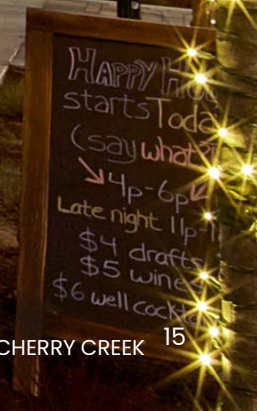 HAPPY
starts Today
(say what?
4p-6p
Late night 11p-
$4 drafts
$5 wine
$6 well
15
CHERRY CREEK